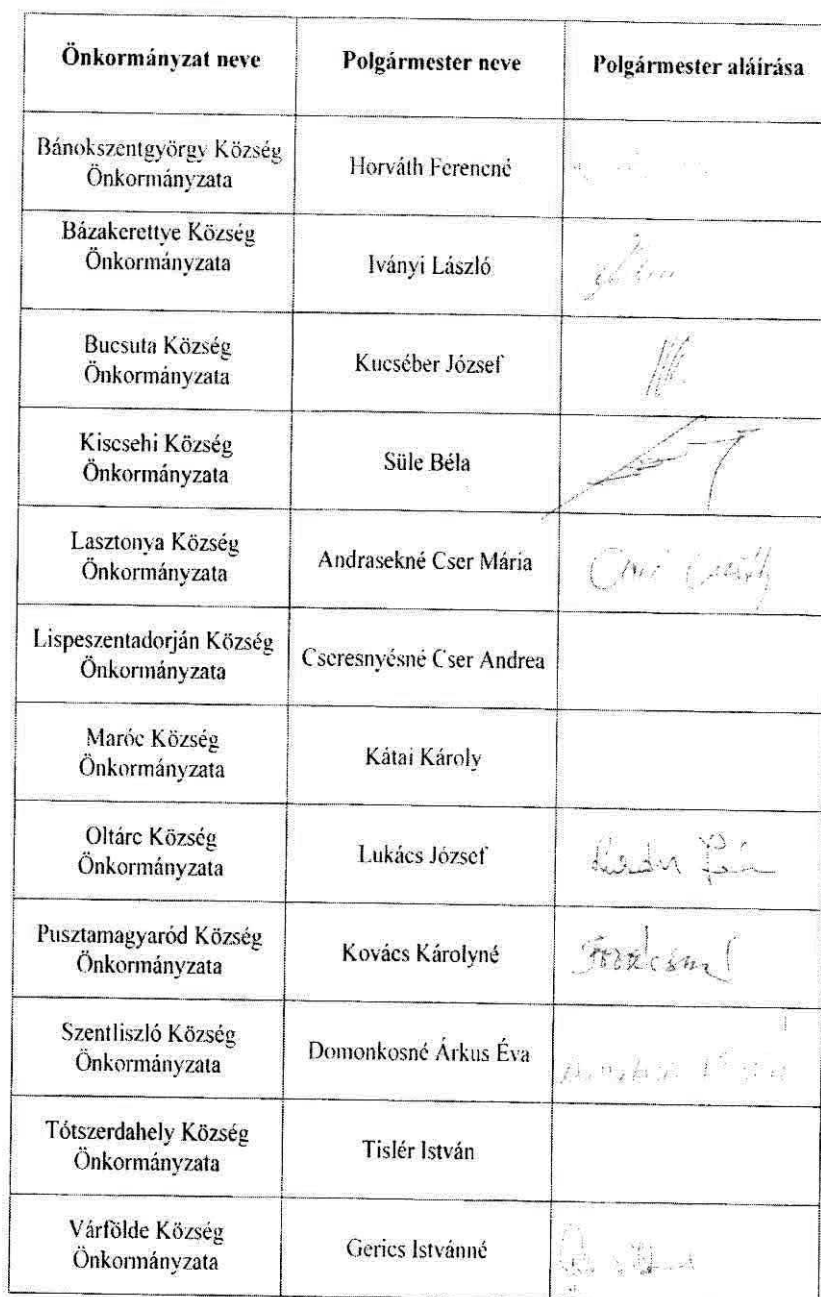 Önkormányzat neve Polgármester neve Polgármester aláírása
Bánokszentgyörgy Község
Önkormányzata
Horváth Ferencné
Bázakerettye Község
Önkormányzata
Iványi László
Bucsuta Község
Önkormányzata
Kucséber József
Kiscsehi Község
Önkormányzata
Süle Béla
Lasztonya Község
Önkormányzata
Andrasekné Cser Mária
Lispeszentadorján Község
Önkormányzata
Cseresnyésné Cser Andrea
Maróc Község
Önkormányzata
Kátai Károly
Oltárc Község
Önkormányzata
Lukács József
Pusztamagyaród Község
Önkormányzata
Kovács Károlyné
Szentliszló Község
Önkormányzata
Domonkosné Árkus Éva
Tótszerdahely Község
Önkormányzata
Tislér István
Várfölde Község
Önkormányzata
Gerics Istvánné